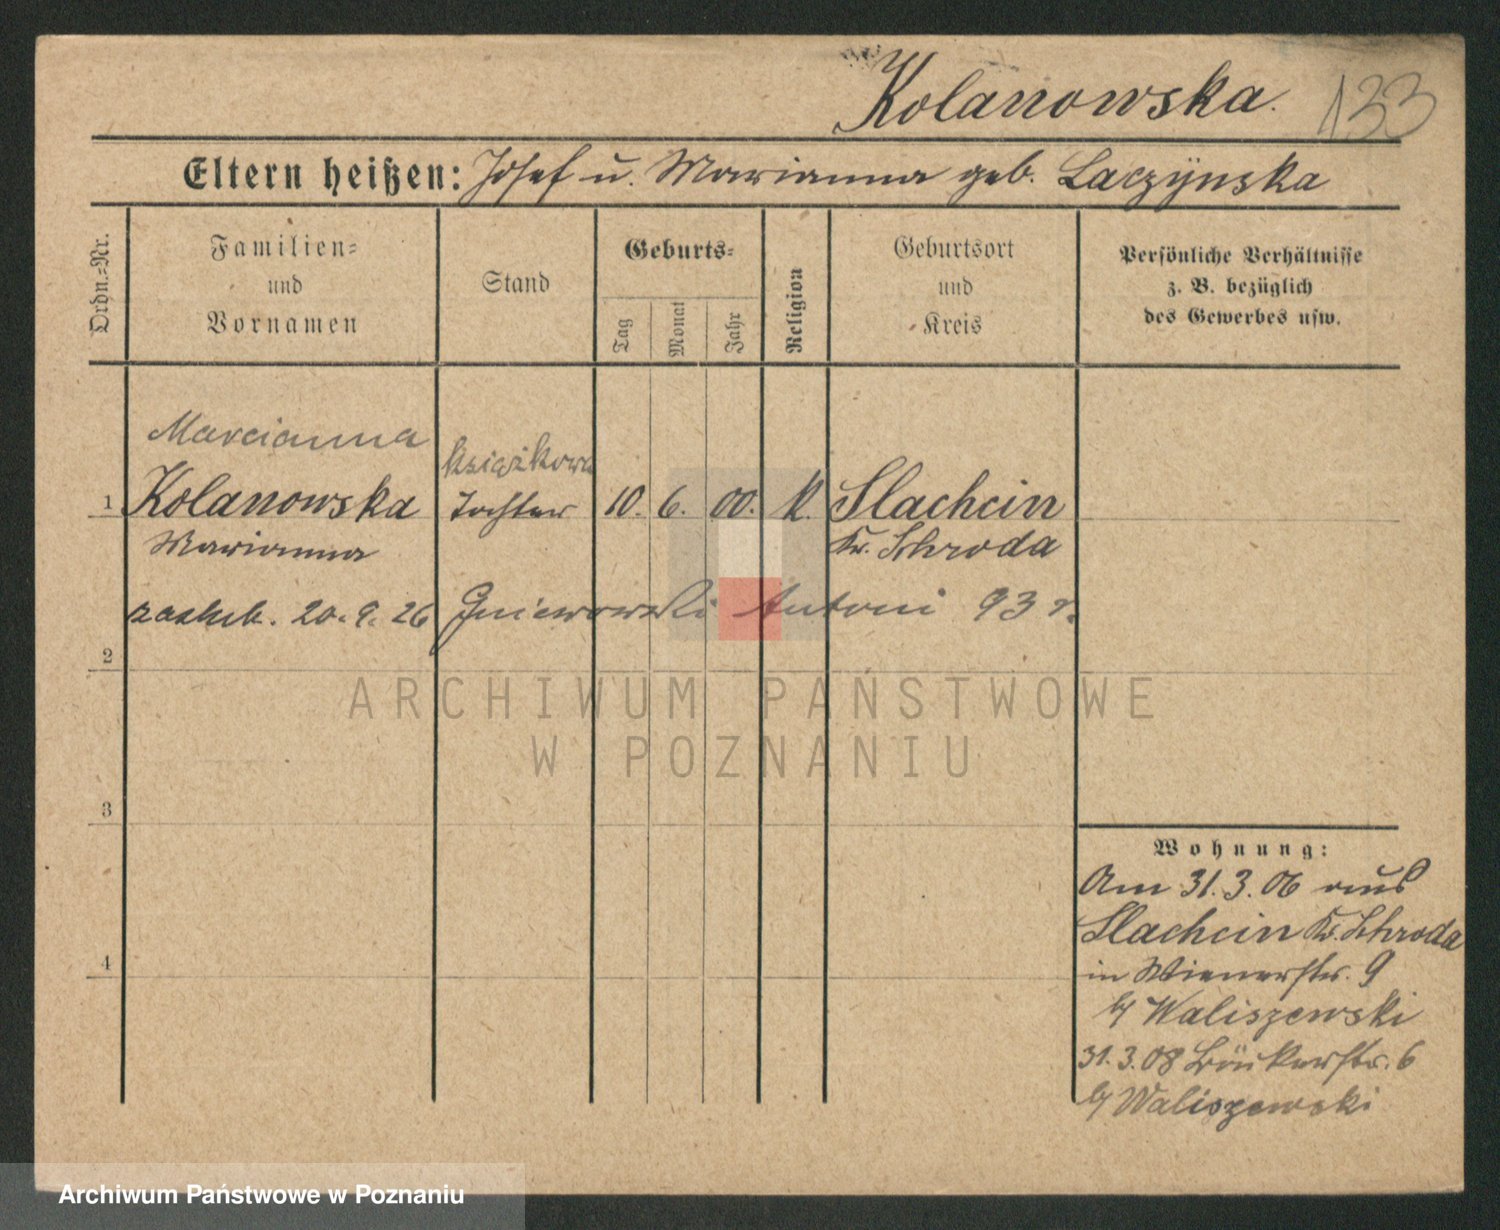 Kolanowska. 133
Eltern heißen: Josef u. Marianna geb. Laczÿnska
Ordn.=Nr.
Familien=
und
Vornamen
Stand
Geburts=
Tag
Monat
Jahr
Religion
Geburtsort
und
Kreis
Persönliche Verhältnisse
z. B. bezüglich
des Gewerbes usw.
Marcianna
książkowa
1 Kolanowska Tochter 10. 6. 00. k. Slachcin
Marianna Kr. Schroda
zaślub. 20. 9. 26 Gniewowski Antoni 93 r.
2
3
4
Wohnung:
Am 31. 3. 06 aus
Slachcin Kr. Schroda
in Wienerstr. 9
b/ Waliszewski
31. 3. 08 Bäckerstr. 6
b/ Waliszewski
ARCHIWUM PAŃSTWOWE
W POZNANIU
Archiwum Państwowe w Poznaniu